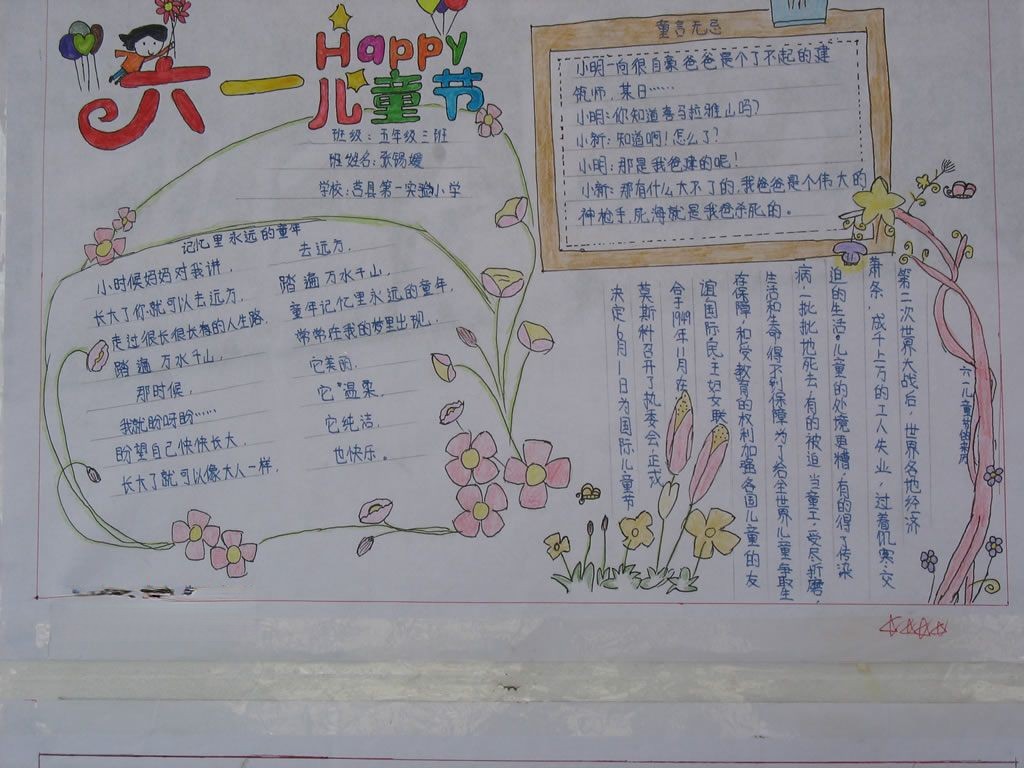 六一
Happy
儿童节
班级：五年级三班
班姓名：张锡媛
学校：莒县第一实验小学
记忆里永远的童年
小时候妈妈对我讲，
长大了你就可以去远方，
走过很长很长的人生路，
踏遍万水千山，
那时候，
我就盼呀盼……
盼望自己快快长大，
长大了就可以像大人一样，
去远方，
踏遍万水千山，
童年记忆里永远的童年，
常常在我的梦里出现，
它美丽，
它温柔，
它纯洁，
也快乐。
童言无忌
小明一向很自豪爸爸是个了不起的建
筑师，某日……
小明：你知道喜马拉雅山吗？
小新：知道啊！怎么了？
小明：那是我爸建的呢！
小新：那有什么大不了的，我爸爸是个伟大的
神枪手，死海就是我爸杀死的。
六一儿童节的来历
第二次世界大战后，世界各地经济
萧条，成千上万的工人失业，过着饥寒交
迫的生活。儿童的处境更糟，有的得了传染
病，一批批地死去，有的被迫当童工，受尽折磨，
生活和生命得不到保障，为了给全世界儿童争取生
存保障和受教育的权利加强各国儿童的友
谊，国际民主妇女联
合于1949年11月在
莫斯科召开了执委会，正式
决定6月1日为国际儿童节